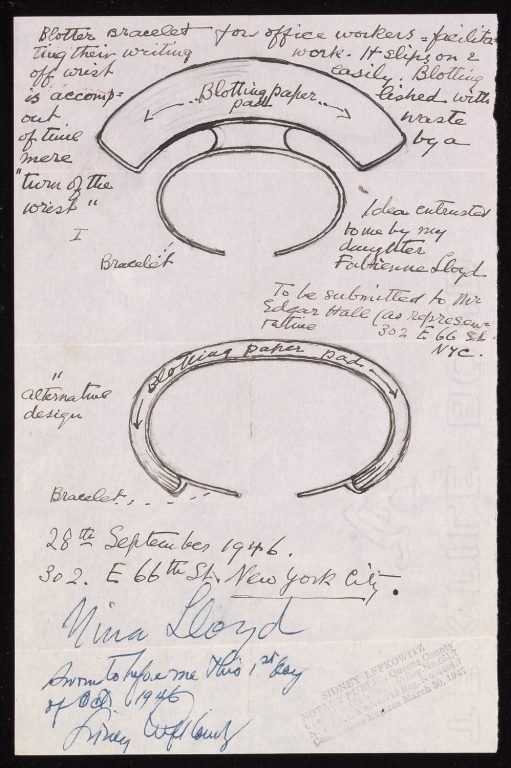 Blotter Bracelet for office workers = facilita-
ting their writing work. It slips on &
off wrist easily. Blotting
is accomp- lished with
out waste
of time by a
mere
"turn of the
wrist"
Blotting paper
pad
I
Bracelet
Idea entrusted
to me by my
daughter
Fabienne Lloyd
To be submitted to Mr
Edgar Hall (as represen=
tative 302 E 66 St.
NYC.
Blotting paper pad
II
alternative
design
Bracelet
28th September 1946.
302. E 66th St. New York City.
Nina Lloyd
Sworn to before me this 1st day
of Oct 1946
Sidney Lefkowitz
SIDNEY LEFKOWITZ
NOTARY PUBLIC
Queens County
Commission Expires March 30, 1947